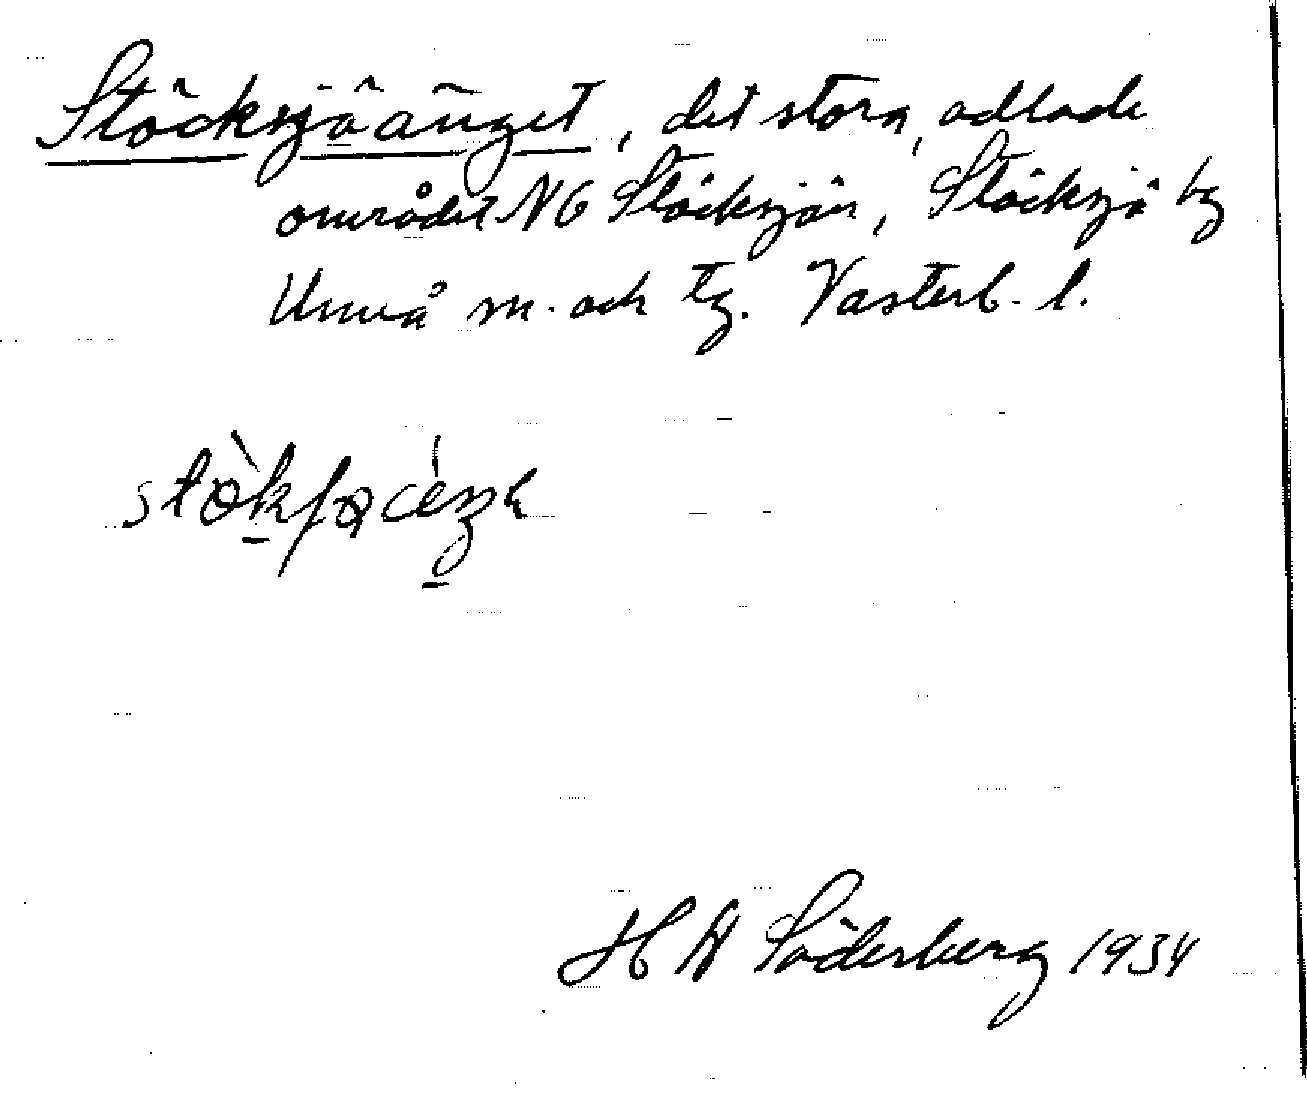 Stöcksjöänget, det stora, odlade
området NO Stöcksjön, Stöcksjö by
Umeå sn. och tg. Västerb. l.
H A Söderberg 1934